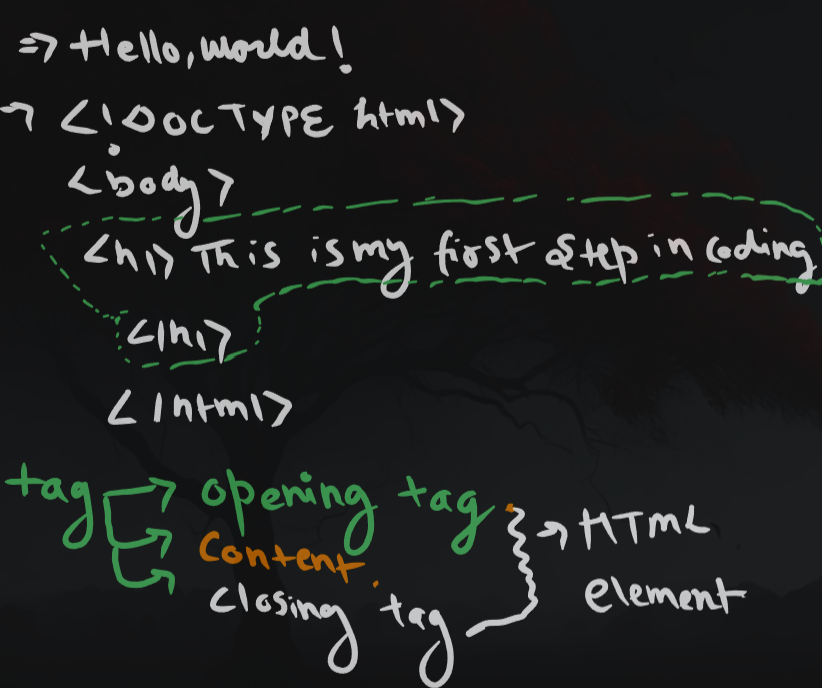 => Hello, world!
→ <!DOCTYPE html>
<body>
<h1> This is my first Step in Coding
</h1>
</html>
tag → opening tag
→ Content.
→ closing tag
→ HTML
element